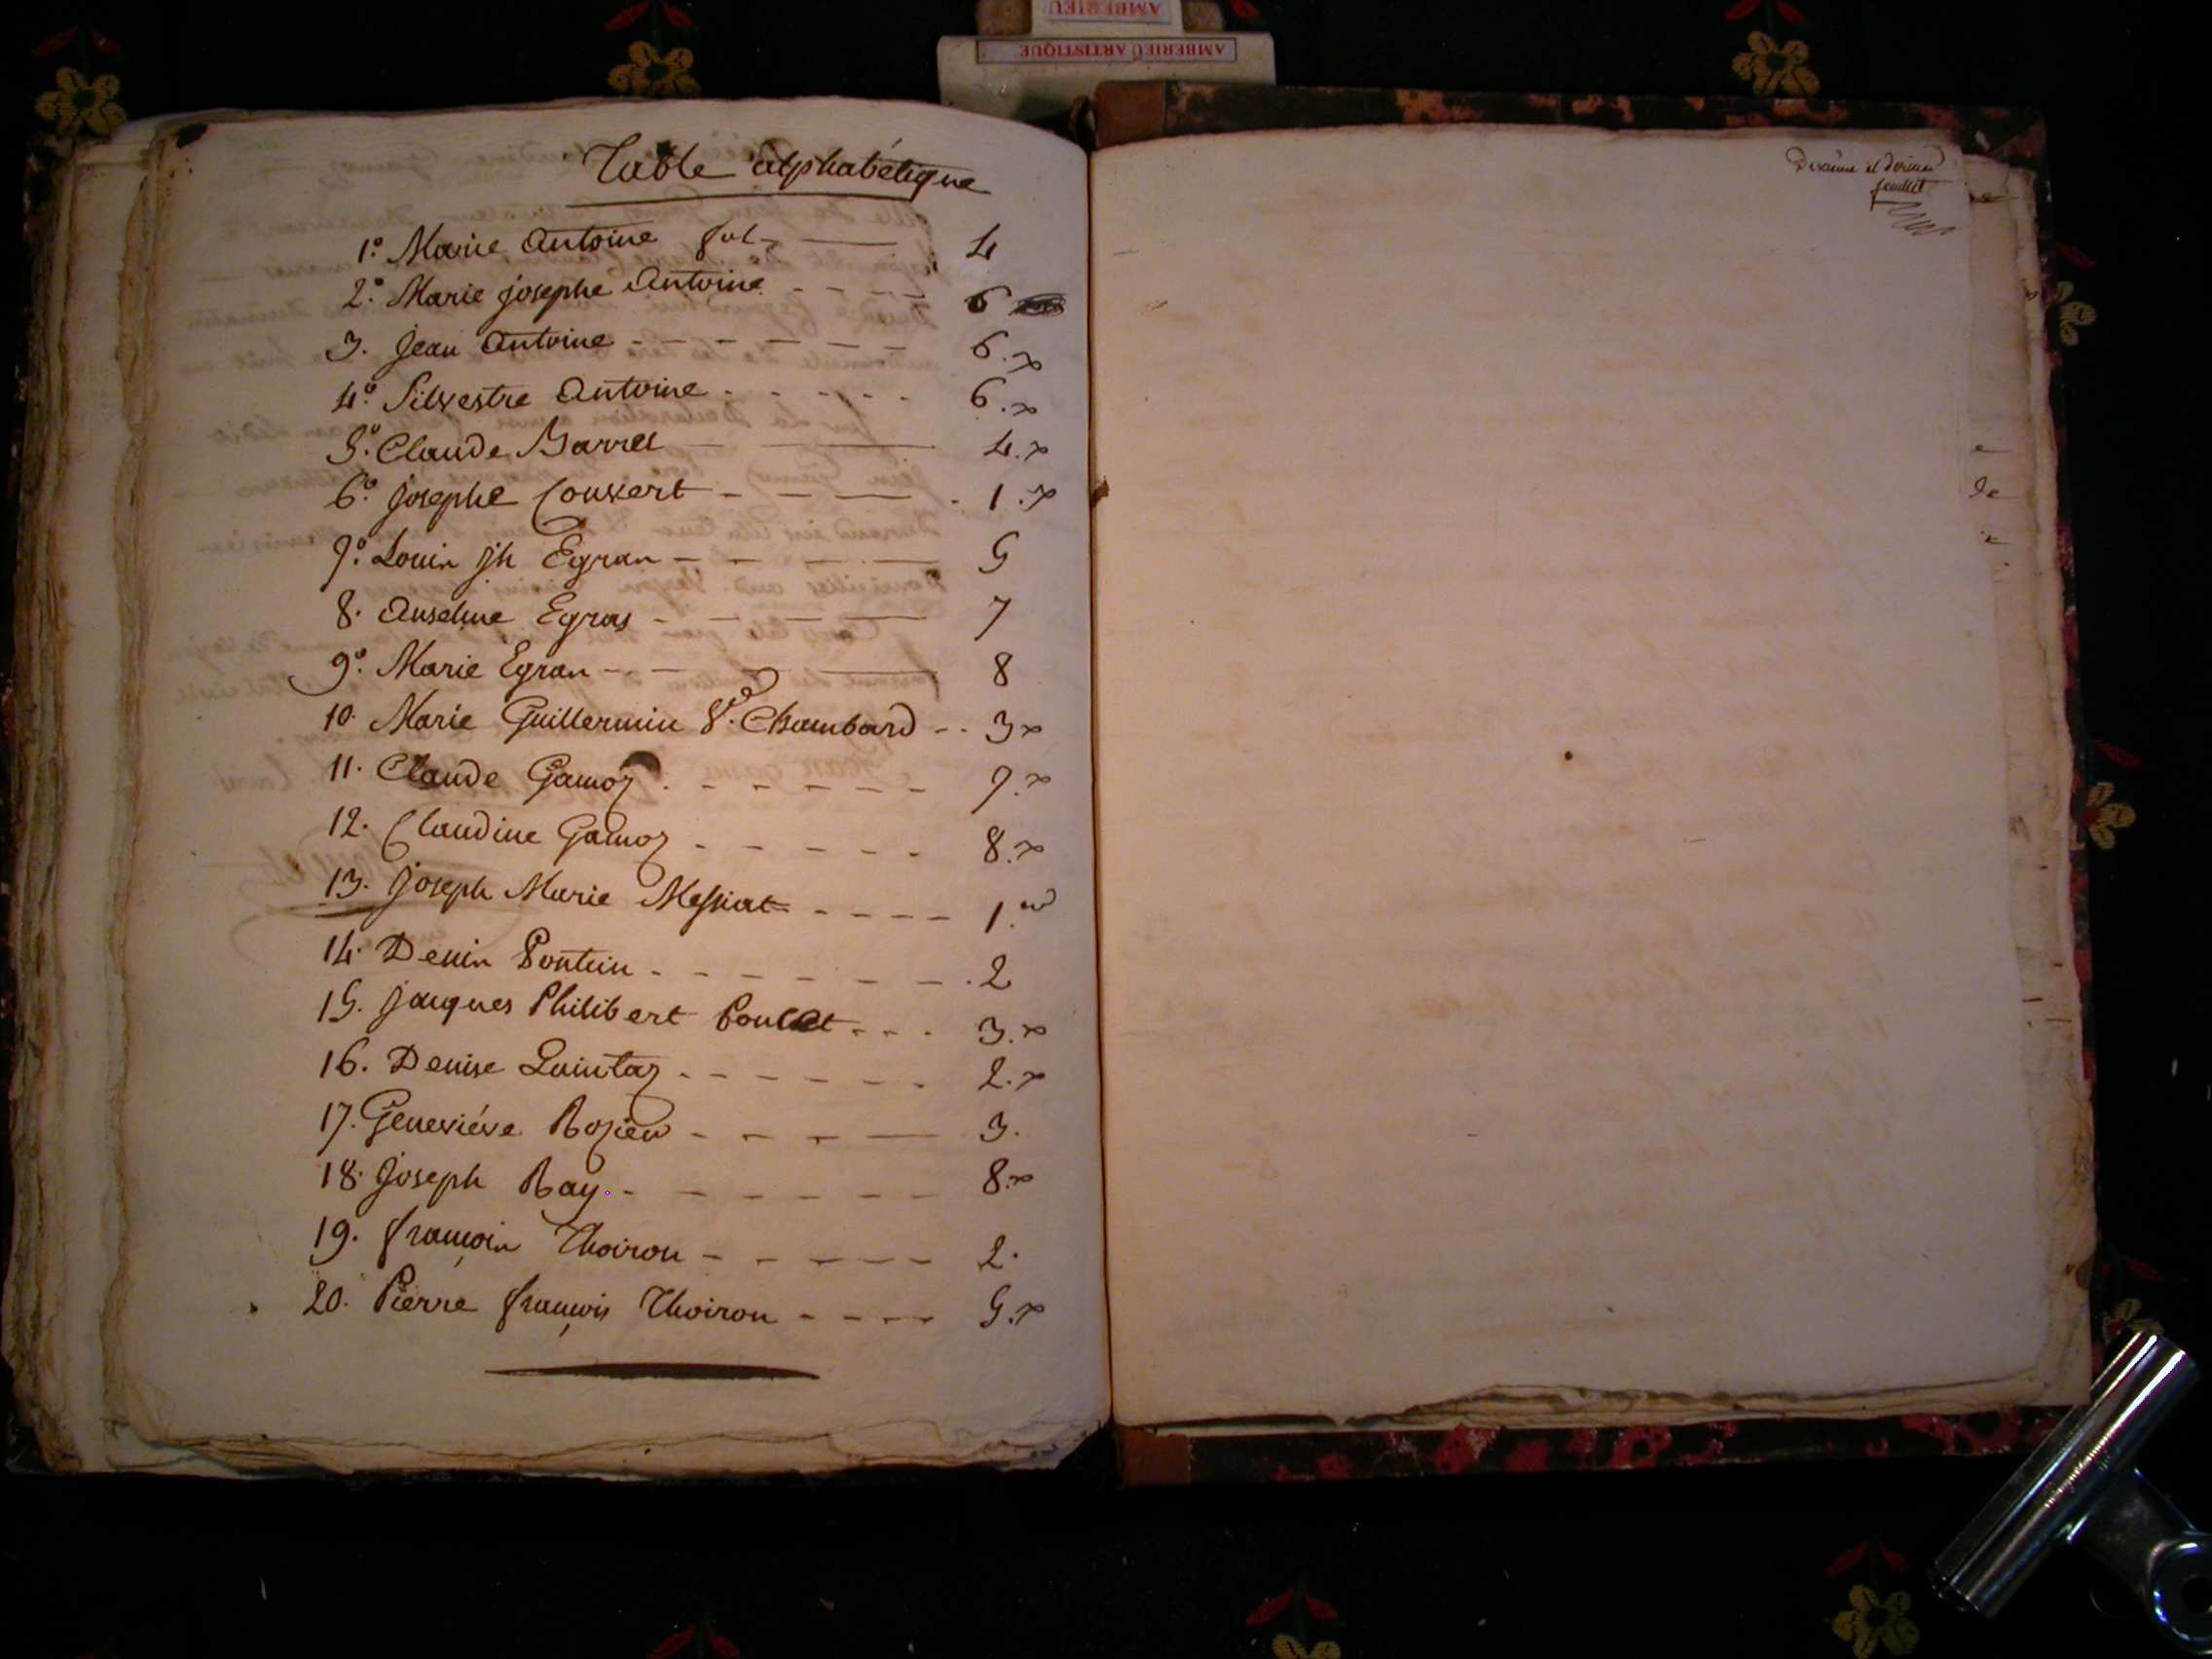 AMBERIEU
AMBERIEU ARTISTIQUE
Table alphabétique
1.° Marie Antoine fol. 4
2.° Marie josephe Antoine 6
3. Jean Antoine 6.
4.° Silvestre Antoine 6.
5.° Claude Barrel 4.
6.° josephe Convert 1.
7.° Louis jh Egras 5
8. Anselme Egras 7
9.° Marie Egras 8
10. Marie Guillermin Ve. Chambard 3
11. Claude Gamoz 7.
12. Claudine Gamoz 8.
13. Joseph Marie Messiat 1.er
14. Denis Pontus 2
15. jacques Philibert Poncet 3.
16. Denise Quintaz 2.
17. Geneviéve Rozier 3.
18. Joseph Ray. 8.
19. françois Thoiron 2.
20. Pierre françois Thoiron 5.
et dernier
feuillet